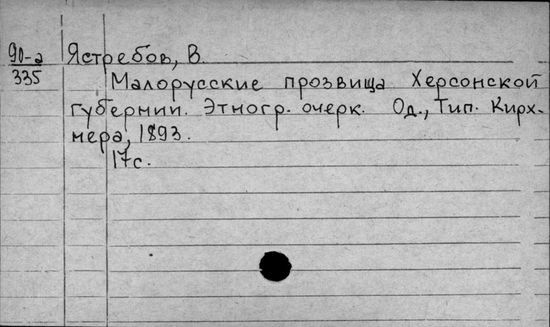 90-а Ястребов, В.
335
Малорусские прозвища Херсонской
губернии. Этногр. очерк. Од., Тип. Кирх-
нера, 1893.
17с.